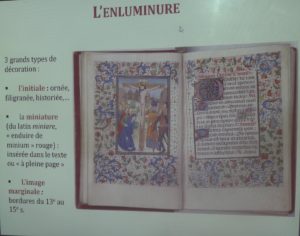 L'ENLUMINURE
3 grands types de
décoration :
• l'initiale : ornée,
filigranée, historiée,...
• la miniature
(du latin miniare,
« enduire de
minium » rouge) :
insérée dans le texte
ou « à pleine page »
• L'image
marginale :
bordures du 13e au
15e s.